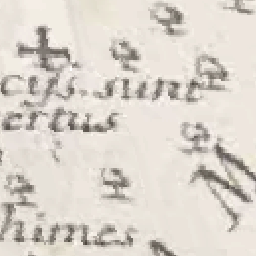 cijs. sunt
ertus
M
himes